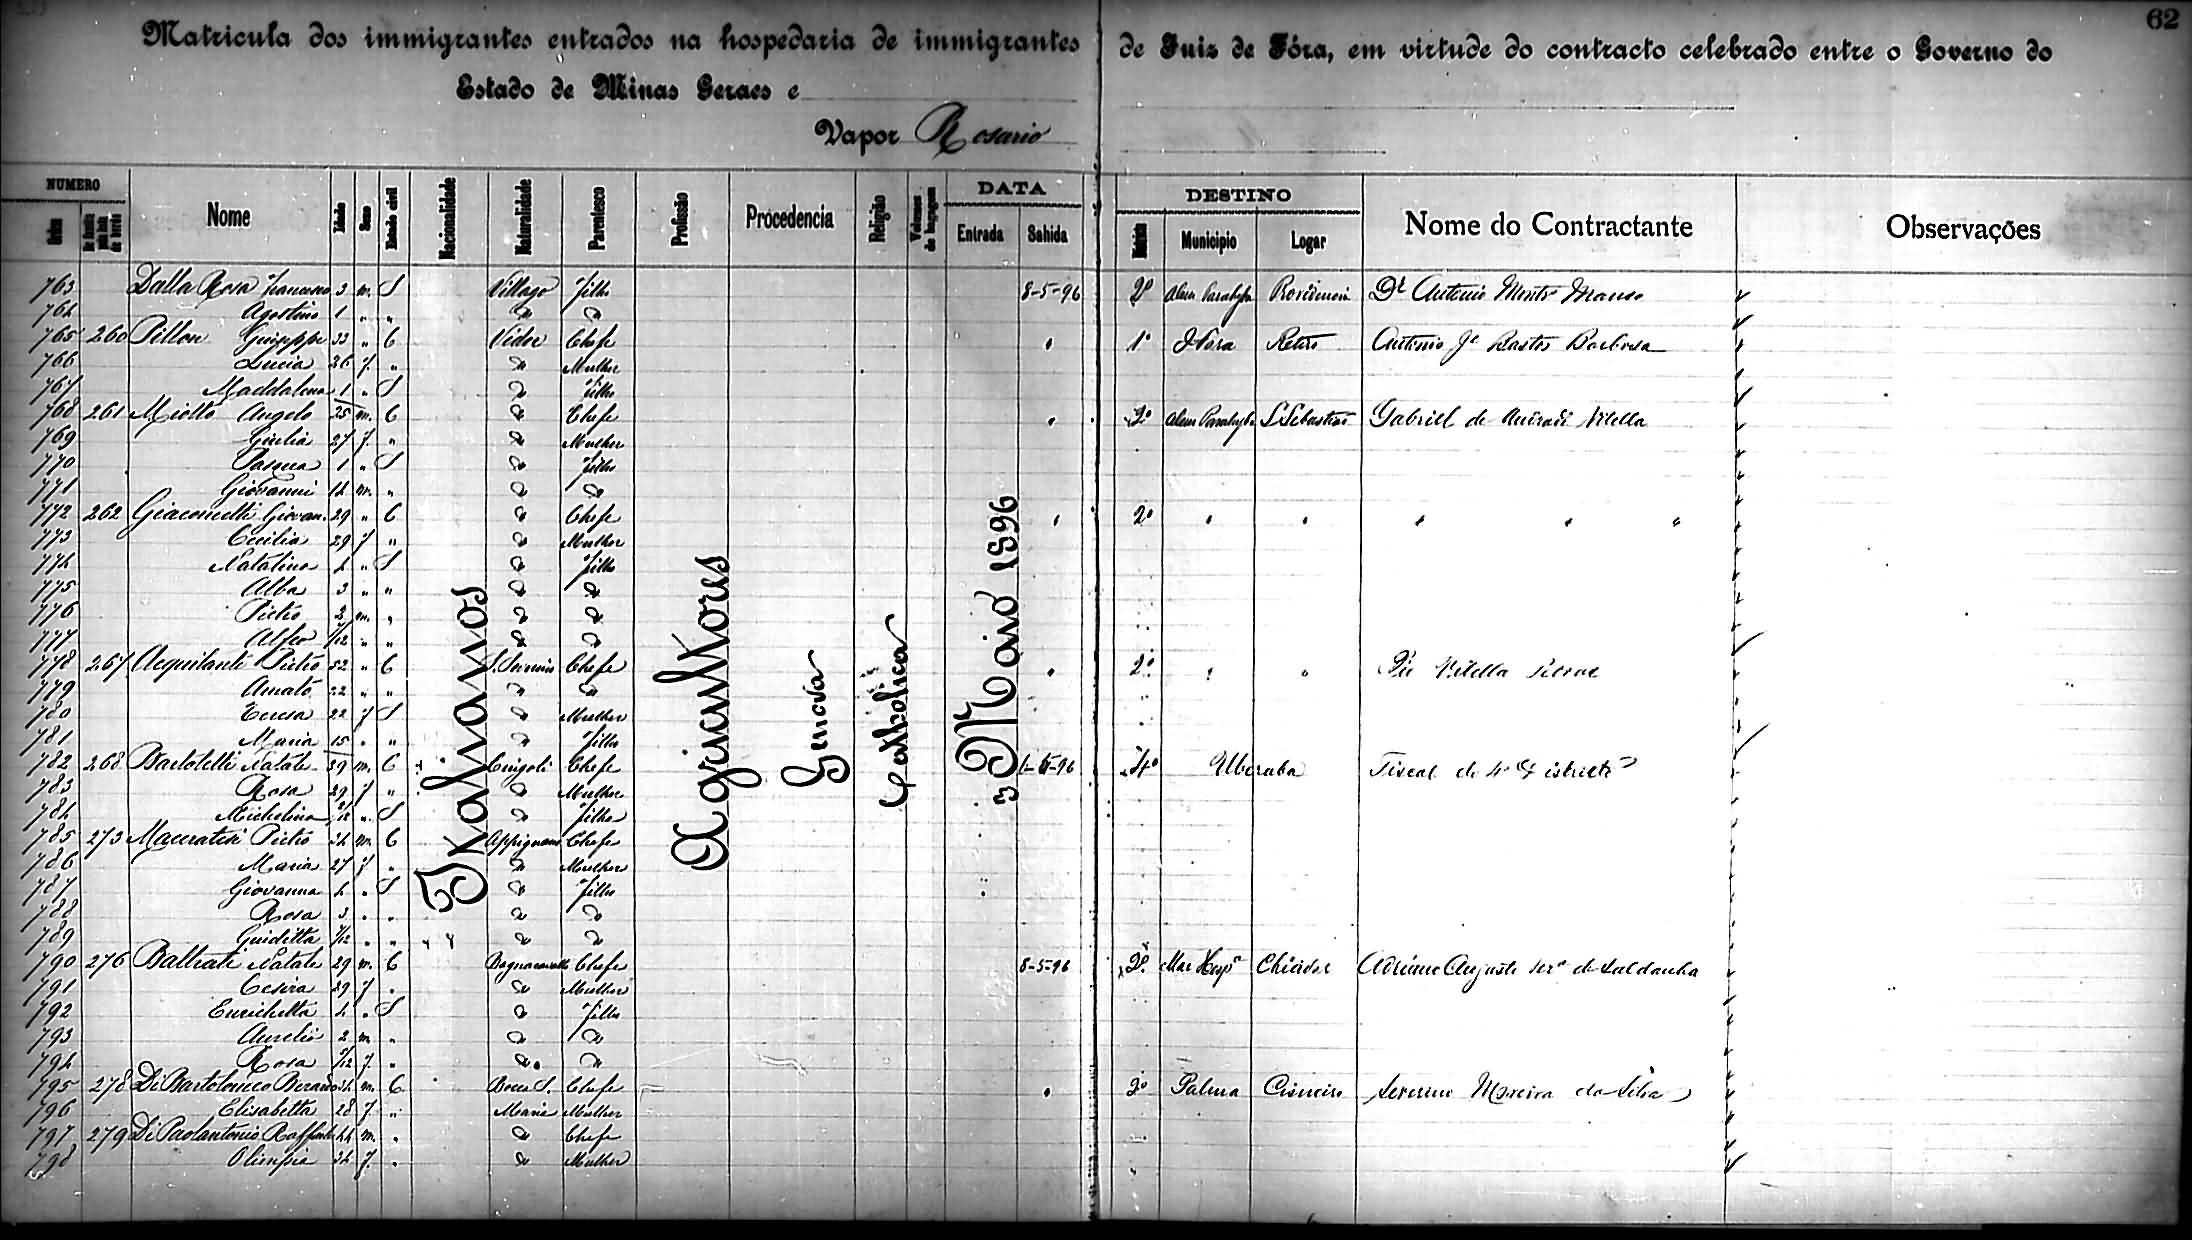 62
Matricula dos immigrantes entrados na hospedaria de immigrantes de Juiz de Fóra, em virtude do contracto celebrado entre o Governo do
Estado de Minas Geraes e
Vapor Rosario
NUMERO Nome Idade Sexo Estado civil Nacionalidade Naturalidade Parentesco Profissão Procedencia Religião Volumes de bagagem DATA DESTINO Nome do Contractante Observações
Ordem Entrada Sahida Municipio Logar
Italianos
Agricultores
Genova
Catholica
3 Maio 1896
763 Dalla Rosa 3 m. S Villago Filho 8-5-96 2º Alem Parahyba Dr Antonio
764 Agostino 1 " "
765 260 Pillon Giuseppe 33 " C Vidor Chefe 1º J Fora Retiro Antonio Je Bastos Barbosa
766 Lucia 26 f. " Mulher
767 Maddalena 1 " S Filha
768 261 Miotto Angelo 25 m. C Chefe 2º Alem Parahyba S Sebastião Gabriel de Andrade Vilella
769 Giulia 27 f. " Mulher
770 Pasqua 1 " S Filha
771 Giovanni 14 m. "
772 262 Giacometti Giovan. 29 " C Chefe 2º " " " " "
773 Cecilia 29 f " Mulher
774 Natalina 4 " S Filha
775 Alba 3 " "
776 Pietro 2 m. "
777 /12 " "
778 267 Acquilanti Pietro 52 " C Chefe 2º " " Vilella
779 Amato 22 " "
780 Teresa 22 f S Mulher
781 Maria 15 " " Filha
782 268 Bartolelli Natale 39 m. C Cingoli Chefe 4º Uberaba Fiscal do 4º Districto
783 Rosa 29 f " Mulher
784 Michelina /12 " S Filha
785 273 Maceratesi Pietro 34 m. C Appignano Chefe
786 Maria 27 f " Mulher
787 Giovanna 4 " S Filha
788 Rosa 3 " "
789 Giuditta /12 " "
790 276 Natale 29 m. C Bagnacavallo Chefe 8-5-96 2º Mar Hespa Chiador Adriano Augusto de Saldanha
791 Cesira 29 f " Mulher
792 Enrichetta 4 " S Filha
793 Aurelio 2 m "
794 Rosa /12 f. "
795 278 Di Bartolomeo Berardo 34 m. C Chefe 2º Palma Cisneiro Severino Moreira da Silva
796 Elisabetta 28 f " Maria Mulher
797 279 Di Paolantonio Raffaele 44 m. " Chefe
798 Olimpia 34 f. " Mulher